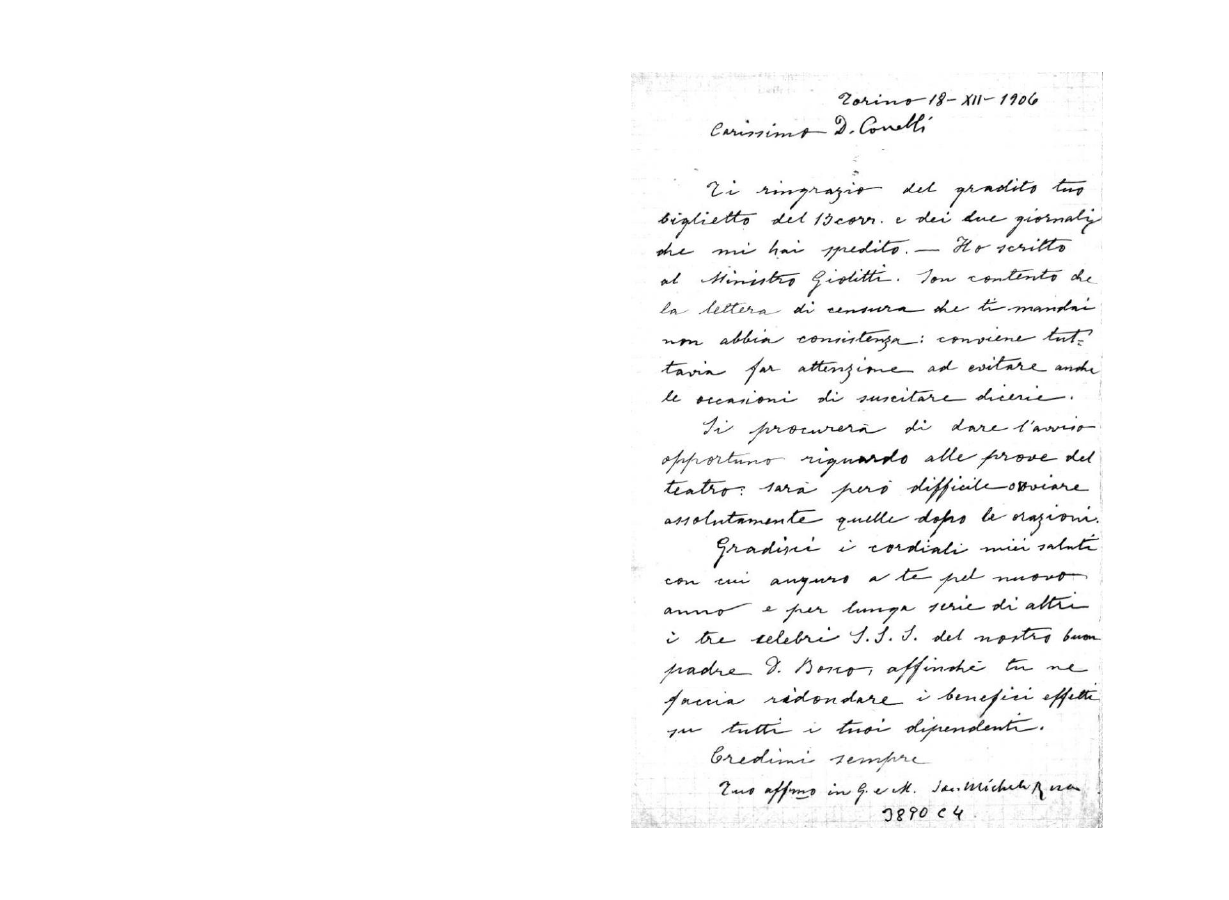 Torino 18 - XII - 1906
Carissimo D. Conelli
Ti ringrazio del gradito tuo
biglietto del 13 corr. e dei due giornali
che mi hai spedito. — Ho scritto
al Ministro Giolitti. Son contento che
la lettera di censura che ti mandai
non abbia consistenza: conviene tut=
tavia far attenzione ad evitare anche
le occasioni di suscitare dicerie.
Si procurerà di dare l'avviso
opportuno riguardo alle prove del
teatro: sarà però difficile ovviare
assolutamente quelle dopo le orazioni.
Gradisci i cordiali miei saluti
con cui auguro a te pel nuovo
anno e per lunga serie di altri
i tre celebri S. S. S. del nostro buon
padre D. Bosco, affinchè tu ne
faccia ridondare i benefici effetti
su tutti i tuoi dipendenti.
Credimi sempre
Tuo affmo in G. e M. Sac. Michele Rua
3890 C 4